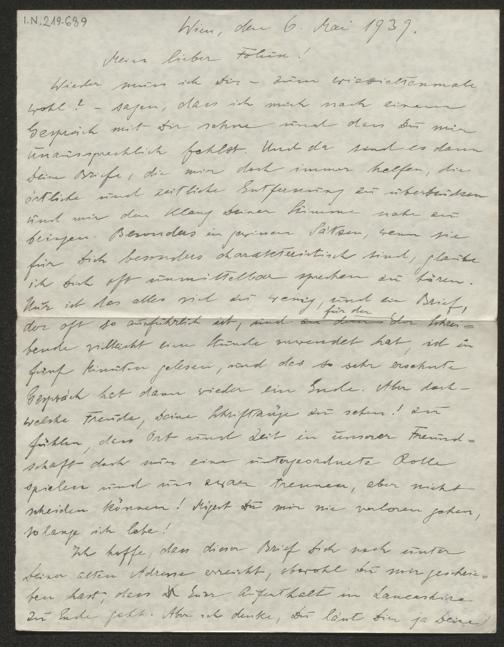 I.N. 219.689
Wien, den 6. Mai 1939.
Mein lieber !
Wieder muss ich Dir – zum wievieltenmale
wohl? – sagen, dass ich mich nach einem
Gespräch mit Dir sehne und dass Du mir
unaussprechlich fehlst. Und da sind es dann
Deine Briefe, die mir doch immer helfen, die
örtliche und zeitliche Entfernung zu überbrücken
und mir den Klang Deiner Stimme nahe zu
bringen. Besonders in gewissen Sätzen, wenn sie
für Dich besonders charakteristisch sind, glaube
ich Dich oft unmittelbar sprechen zu hören.
Nur ist das alles viel zu wenig, und ein Brief,
der oft so ausführlich ist, und für den der Schrei-
bende vielleicht eine Stunde verwendet hat, ist in
fünf Minuten gelesen, und das so sehr ersehnte
Gespräch hat dann wieder ein Ende. Aber doch –
welche Freude, Deine Schriftzüge zu sehen! zu
fühlen, dass Ort und Zeit in unserer Freund-
schaft doch nur eine untergeordnete Rolle
spielen und uns zwar trennen, aber nicht
scheiden können! Mögest Du mir nie verloren gehen,
solange ich lebe!
Ich hoffe, dass dieser Brief Dich noch unter
Deiner alten Adresse erreicht, obwohl Du mir geschrie-
ben hast, dass Euer Aufenthalt in Lancashire
zu Ende geht. Aber ich denke, Du lässt Dir ja Deine